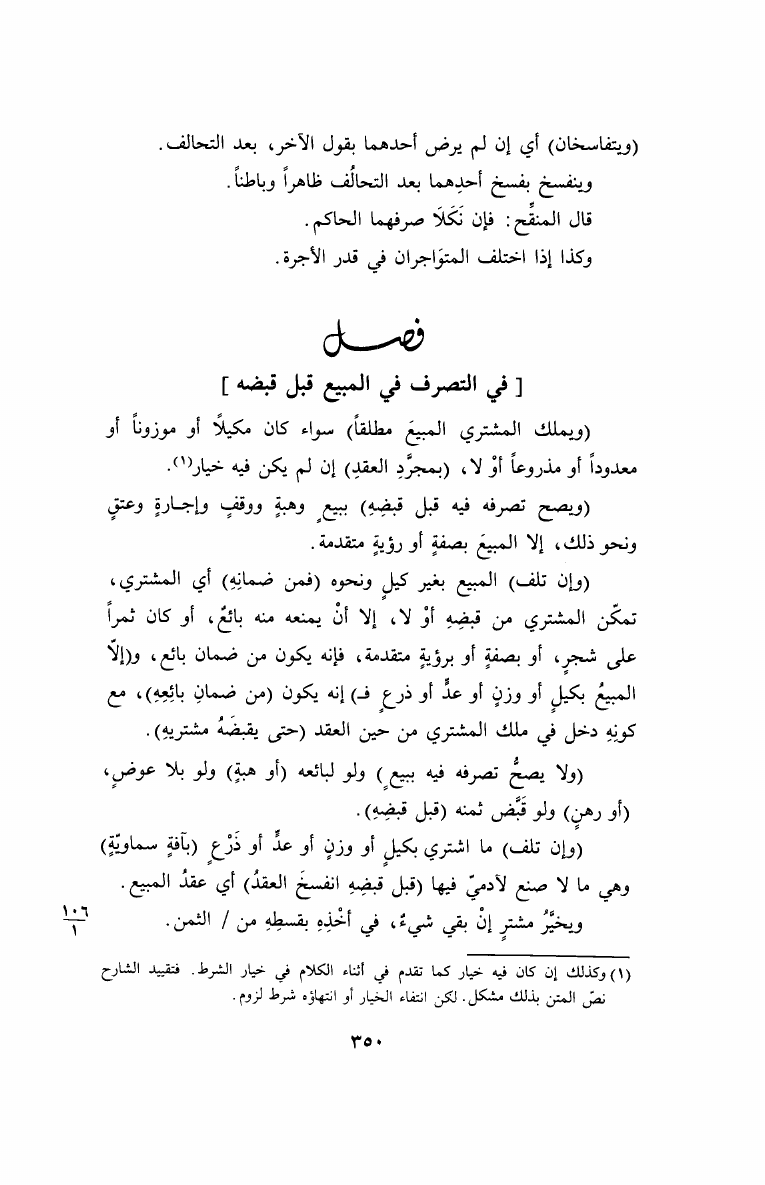 (ويتفاسخان) أي إن لم يرض أحدهما بقول الآخر، بعد التحالف.
وينفسخ بفسخ أحدِهما بعد التحالُف ظاهراً وباطناً.
قال المنقِّح: فإن نَكَلَا صرفهما الحاكم.
وكذا إذا اختلف المتوَاجران في قدر الأجرة.
فصل
[ في التصرف في المبيع قبل قبضه ]
(ويملك المشتري المبيعَ مطلقاً) سواء كان مكيلًا أو موزوناً أو
معدوداً أو مذروعاً أوْ لا، (بمجرَّدِ العقدِ) إن لم يكن فيه خيار(١).
(ويصح تصرفه فيه قبل قبضِهِ) ببيعٍ وهبةٍ ووقفٍ وإجارةٍ وعتقٍ
ونحو ذلك، إلا المبيعَ بصفةٍ أو رؤيةٍ متقدمة.
(وإن تلف) المبيع بغير كيلٍ ونحوه (فمن ضمانِهِ) أي المشتري،
تمكّن المشتري من قبضِهِ أوْ لا، إلا أنْ يمنعه منه بائعٌ، أو كان ثمراً
على شجرٍ، أو بصفةٍ أو برؤيةٍ متقدمة، فإنه يكون من ضمان بائع، و(إلّا
المبيعُ بكيلٍ أو وزنٍ أو عدٍّ أو ذرعٍ فـ) إنه يكون (من ضمانِ بائِعِهِ)، مع
كونِهِ دخل في ملك المشتري من حين العقد (حتى يقبضَهُ مشتريه).
(ولا يصحُّ تصرفه فيه ببيعٍ) ولو لبائعه (أو هبةٍ) ولو بلا عوضٍ،
(أو رهنٍ) ولو قَبَّض ثمنه (قبل قبضِهِ).
(وإن تلف) ما اشتري بكيلٍ أو وزنٍ أو عدٍّ أو ذَرْعٍ (بآفةٍ سماويّةٍ)
وهي ما لا صنع لآدميّ فيها (قبل قبضِهِ انفسخَ العقدُ) أي عقدُ المبيع.
ويخيَّرُ مشترٍ إنْ بقي شيءٌ، في أخْذِهِ بقسطِهِ من / الثمن.
١٠٦
١
(١) وكذلك إن كان فيه خيار كما تقدم في أثناء الكلام في خيار الشرط. فتقييد الشارح
نصّ المتن بذلك مشكل. لكن انتفاء الخيار أو انتهاؤه شرط لزوم.
٣٥٠